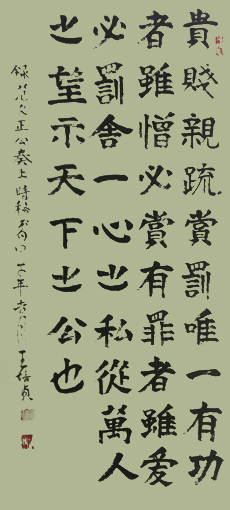 貴賤親疏賞罰唯一有功
者雖憎必賞有罪者雖愛
必罰舍一心之私從萬人
之望示天下之公也
録范文正公奏上時務書句 年 王 貞